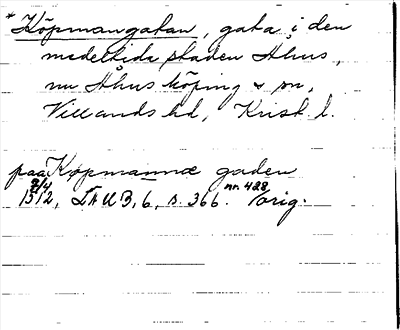 * Köpmangatan, gata i den
medeltida staden Åhus,
nu Åhus köping o sn,
Villands hd, Krist. l.
paa Køpmannæ gaden
2/4 1512, LAUB, 6, s. 366. nr. 428 orig.